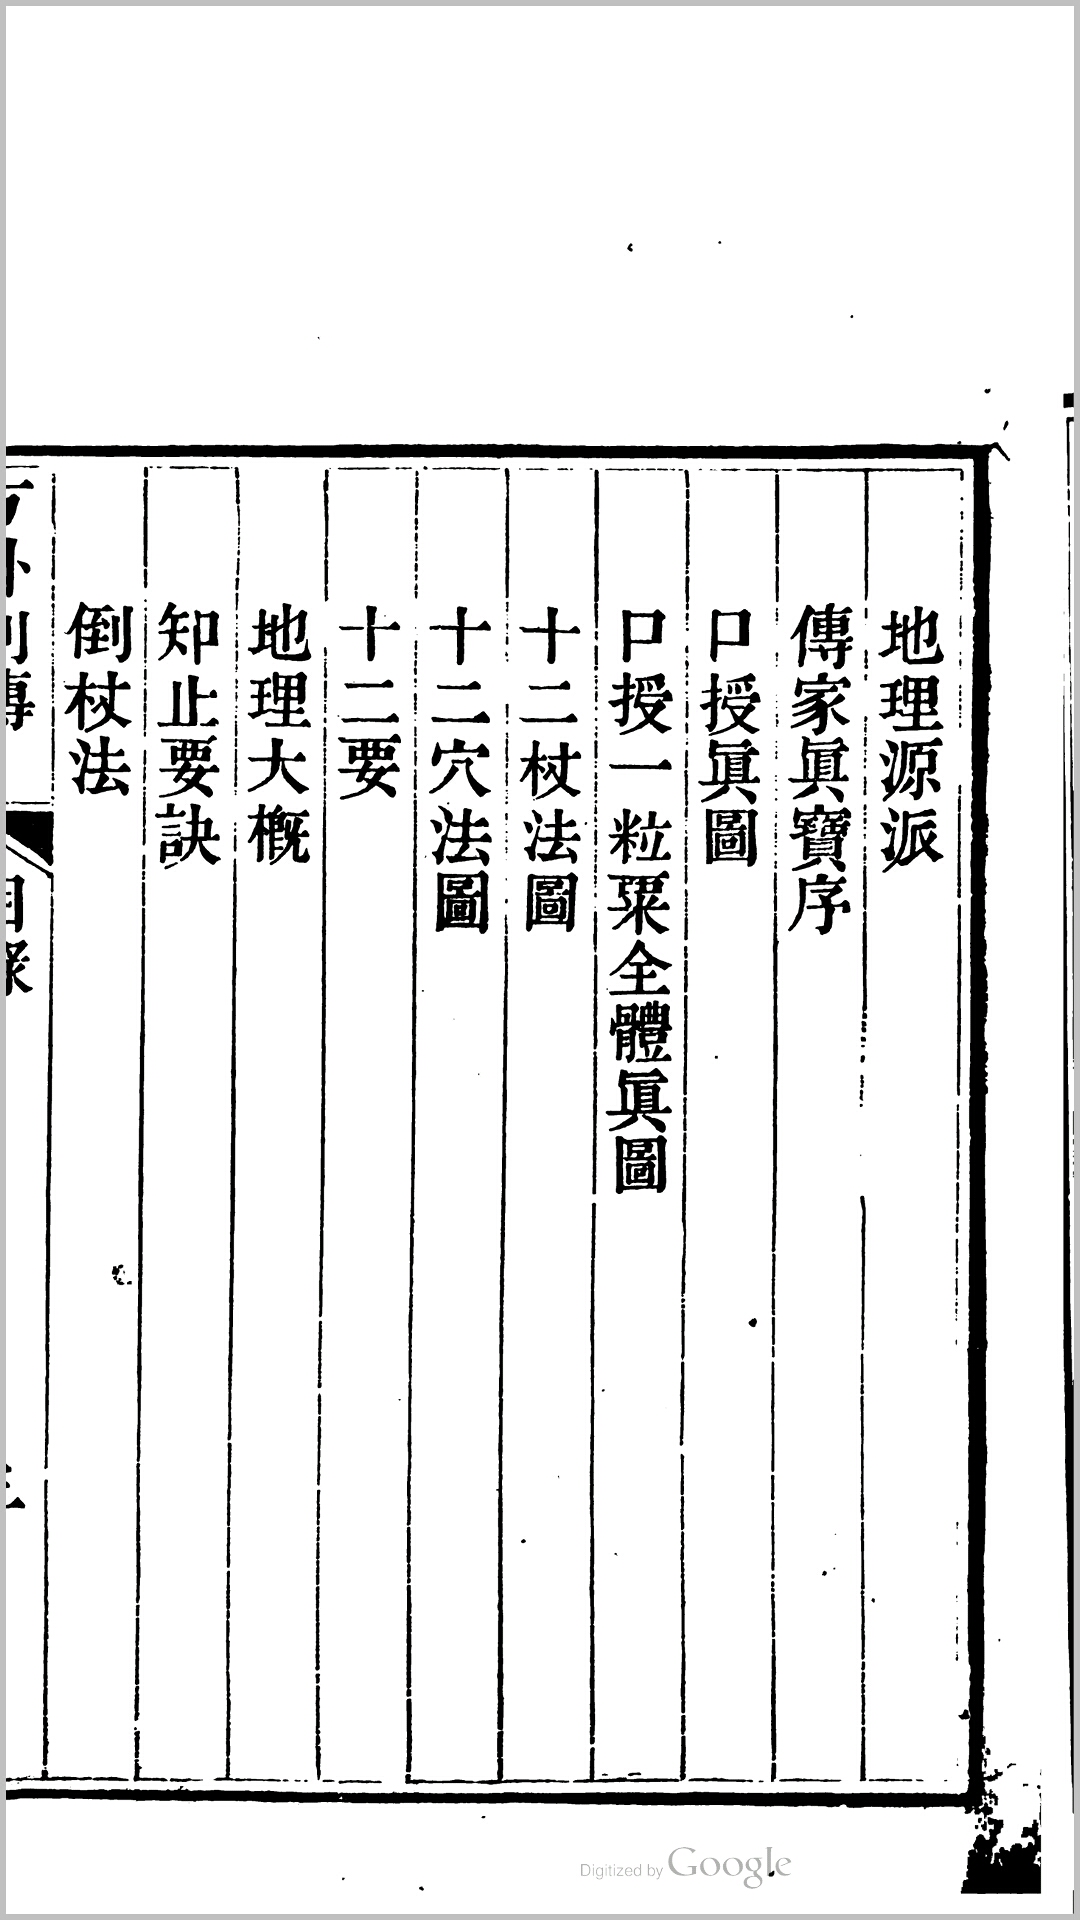 地理源派
傳家眞寶序
口授眞圖
口授一粒粟全體眞圖
十二杖法圖
十二穴法圖
十二要
地理大概
知止要訣
倒杖法
目錄
Digitized by Google